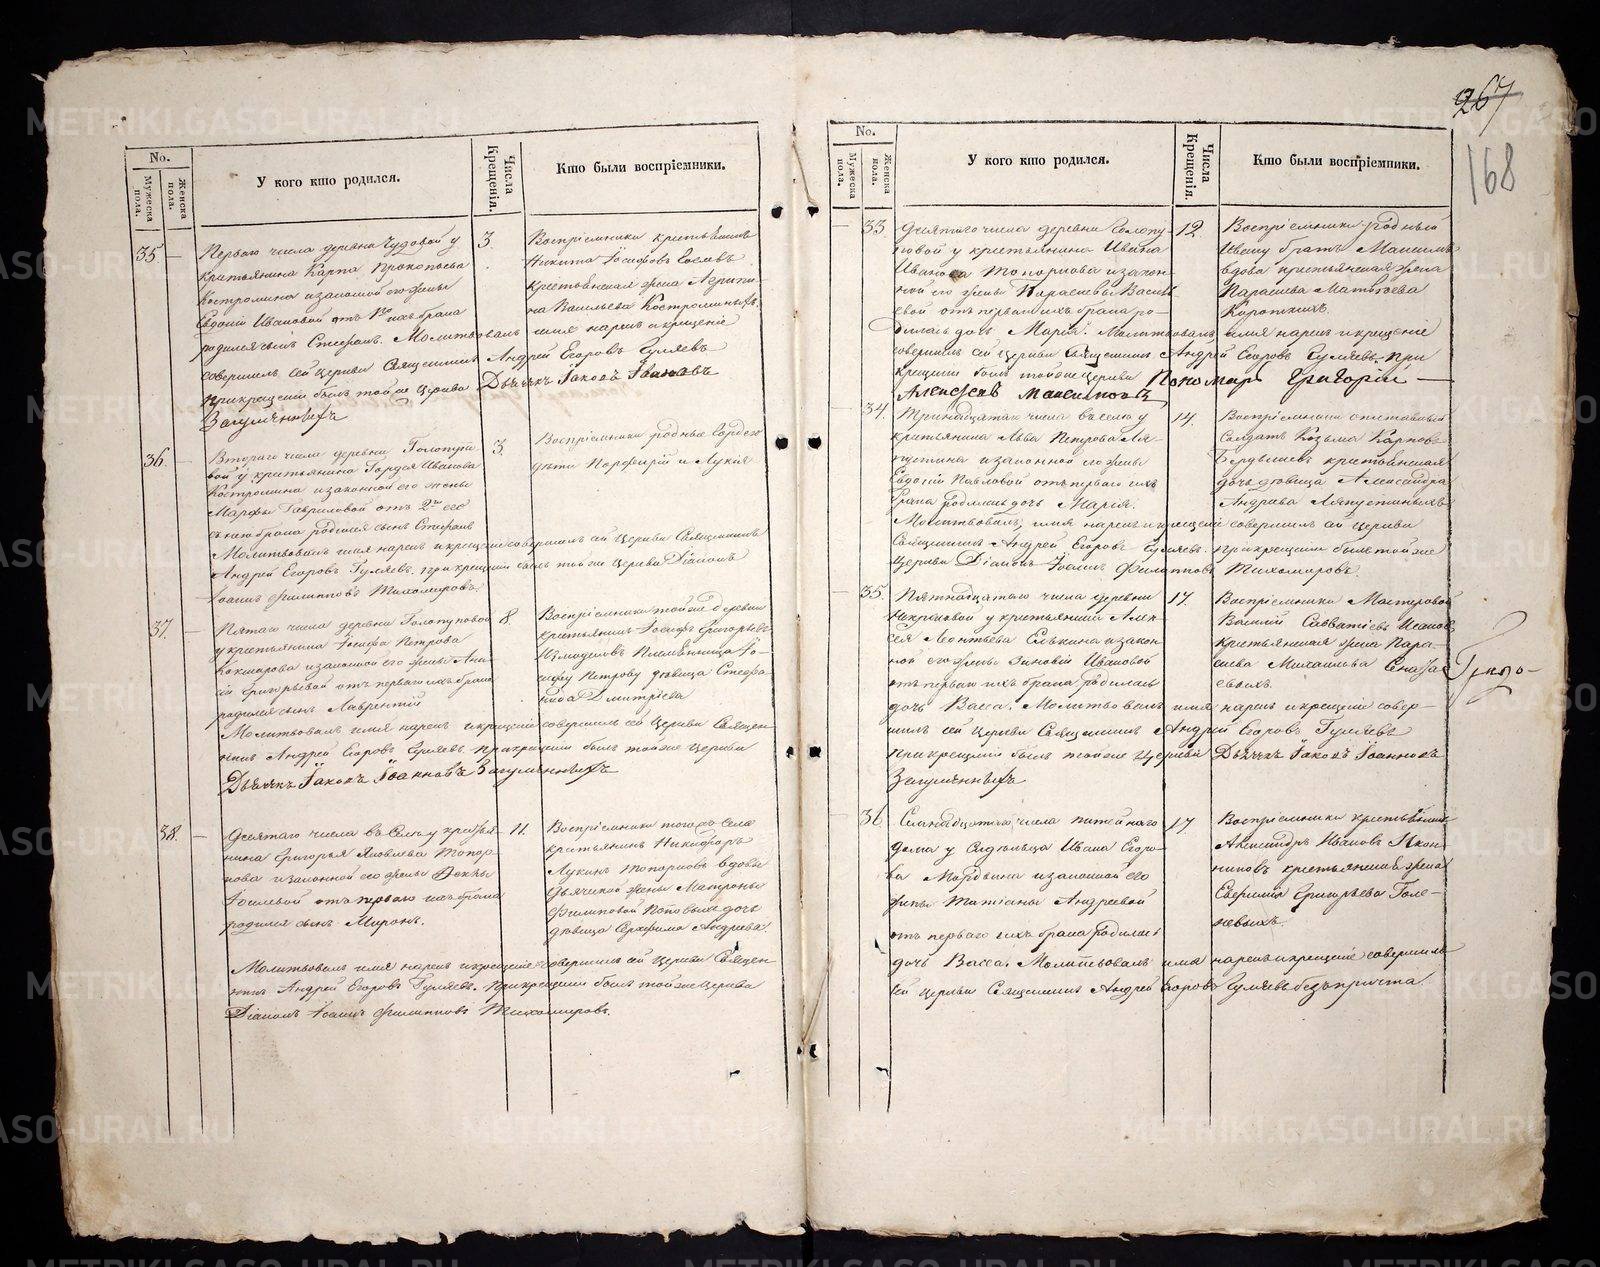 267
168
No.
Мужеска пола.
Женска пола.
У кого кто родился.
Числа Крещенія.
Кто были воспріемники.
35 —
Перваго числа деревни Чудовой у
крестьянина Карпа Прокопьева
Костромина и законной его жены
Евдокіи Ивановой отъ ихъ брака
родился сынъ Стефанъ. Молитвовалъ имя нарекъ и крещеніе
совершилъ сей церкви Священникъ Андрей Егоровъ Гуляевъ
при крещеніи былъ той же Церкви Дьячекъ Іаковъ Іоановъ
Загуменныхъ
3.
Воспріемники крестьянинъ
Никита Іосифовъ
крестьянская жена
Васильева Костроминыхъ.
36. —
Втораго числа деревни Голопупо
вой у крестьянина Гордея Иванова
Костромина и законной его жены
Марфы Гавриловой отъ 2го его
съ нею брака родился сынъ Стефанъ
Молитвовалъ имя нарекъ и крещеніе совершилъ сей Церкви Священникъ
Андрей Егоровъ Гуляевъ. при крещеніи былъ той же Церкви Діаконъ
Іоаннъ Филипповъ Тихомировъ.
3.
Воспріемники родные Гордею
дѣти Порфирій и Лукія
37. —
Пятаго числа деревни Голопуповой
у крестьянина Іосифа Петрова
и законной его жены Анны
Григорьевой отъ перваго ихъ брака
родился сынъ Лаврентій
Молитвовалъ имя нарекъ и крещеніе совершилъ сей Церкви Священ
никъ Андрей Егоровъ Гуляевъ при крещеніи былъ той же Церкви
Дьячекъ Іаковъ Іоанновъ Загуменныхъ
8.
Воспріемники той же деревни
крестьянинъ Іосифъ Григорьевъ
племянница Іо-
сифу Петрову дѣвица Стефа-
нида Дмитріева
38. —
Десятаго числа въ Селѣ у крестья-
нина Григорья Яковлева Топор-
кова и законной его жены Феклы
отъ перваго ихъ брака
родился сынъ Миронъ.
Молитвовалъ имя нарекъ и крещеніе совершилъ сей Церкви Священ
никъ Андрей Егоровъ Гуляевъ. При крещеніи былъ той же Церкви
Діаконъ Іоаннъ Филипповъ Тихомировъ.
11.
Воспріемники того же Села
крестьянинъ Никифоръ
Лукинъ Топорковъ вдовы
Дьячихой жены Матроны
Филиповой Поповыхъ дочь
дѣвица Серафима Андреева.
No.
Мужеска пола.
Женска пола.
У кого кто родился.
Числа Крещенія.
Кто были воспріемники.
— 33
Десятаго числа деревни Голопу-
повой у крестьянина Ивана
Иванова Топоркова и закон-
ной его жены Параскевы Василь
евой отъ перваго ихъ брака ро-
дилась дочь Марія. Молитвовалъ имя нарекъ и крещеніе
совершилъ сей Церкви Священникъ Андрей Егоровъ Гуляевъ. При
крещеніи былъ той же Церкви Пономарь Григорій —
Алексѣевъ
12.
Воспріемники родный
Ивану братъ Максимъ
вдова крестьянская жена
Параскева Матвѣева
Короткихъ.
— 34.
Тринадцатаго числа въ селѣ у
крестьянина Льва Петрова Ля-
пустина и законной его жены
Евдокіи Павловой отъ перваго ихъ
брака родилась дочь Марія.
Молитвовалъ, имя нарекъ и крещеніе совершилъ сей Церкви
Священникъ Андрей Егоровъ Гуляевъ. при крещеніи былъ той же
Церкви Діаконъ Іоаннъ Филиповъ Тихомировъ.
14.
Воспріемники отставный
Солдатъ Козьма Карповъ
крестьянская
дочь дѣвица Александра
Андреева Ляпустиныхъ
— 35.
Пятнадцатаго числа деревни
Некрасовой у крестьянина Алек-
сѣя Леонтьева Елькина и закон-
ной его жены Зиновіи Ивановой
отъ перваго ихъ брака родилась
дочь Васса. Молитвовалъ имя нарекъ и крещеніе совер-
шилъ сей Церкви Священникъ Андрей Егоровъ Гуляевъ
При крещеніи былъ той же Церкви Дьячекъ Іаковъ Іоанновъ
Загуменныхъ
17.
Воспріемники Мастеровой
Василій Савватіевъ
крестьянская жена Пара-
скева Михайлова
— 36
Семнадцатаго числа питейнаго
дома у Сидѣльца Ивана Егоро-
ва Мордвина и законной его
жены Татіаны Андреевой
отъ перваго ихъ брака родилась
дочь Васса. Молитвовалъ имя нарекъ и крещеніе совершилъ
сей Церкви Священникъ Андрей Егоровъ Гуляевъ безъ причта.
17
Воспріемники крестьянинъ
Александръ Ивановъ Икон-
никовъ крестьянская жена
Григорьева Голе-
невыхъ.
METRIKI.GASO-URAL.RU